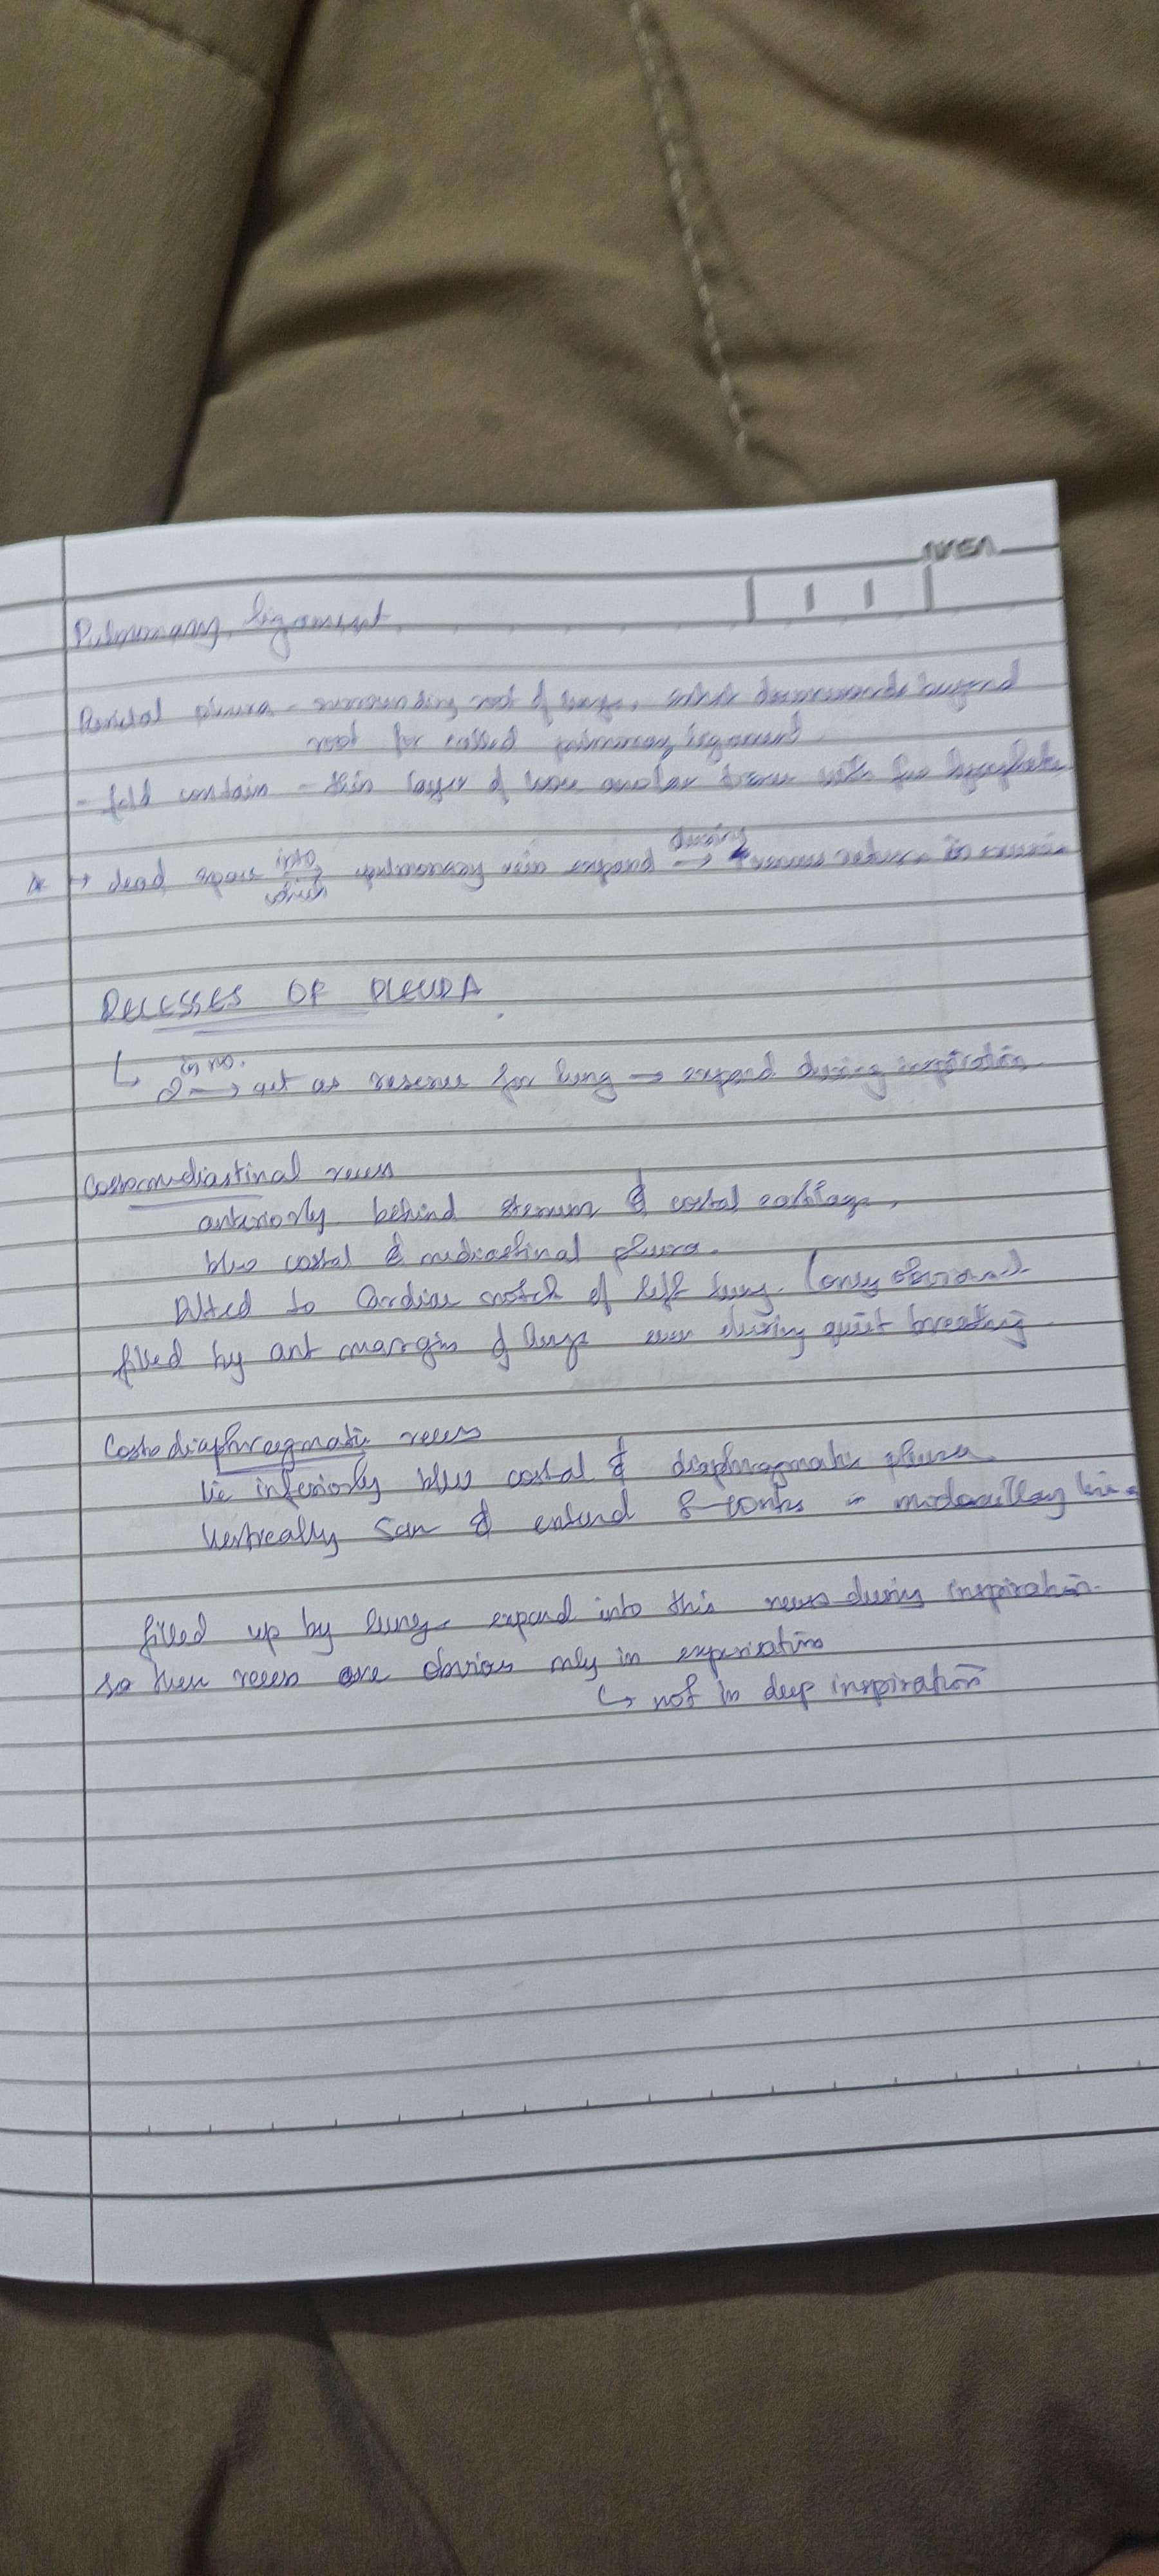 Pulmonary ligament
Parietal pleura - surrounding root of lungs, beyond
root for called pulmonary ligament.
- fold contain - thin layer of loose areolar tissue with few lymphatics
* → dead space into which pulmonary vein expand during → venous return in
RECESSES OF PLEURA
↳ 2 in no. → act as reserve for lung → expand during inspiration
Costomediastinal recess
anteriorly behind sternum & costal cartilage,
b/w costal & mediastinal pleura.
to Cardiac notch of left lung. (only obvious).
filled by ant margin of lungs even during quiet breathing
Costodiaphragmatic recess
lie inferiorly b/w costal & diaphragmatic pleura
Vertically 5cm & extend 8-10 ribs midaxillary line
filled up by lung - expand into this recess during inspiration
so recess are obvious only in
↳ not in deep inspiration